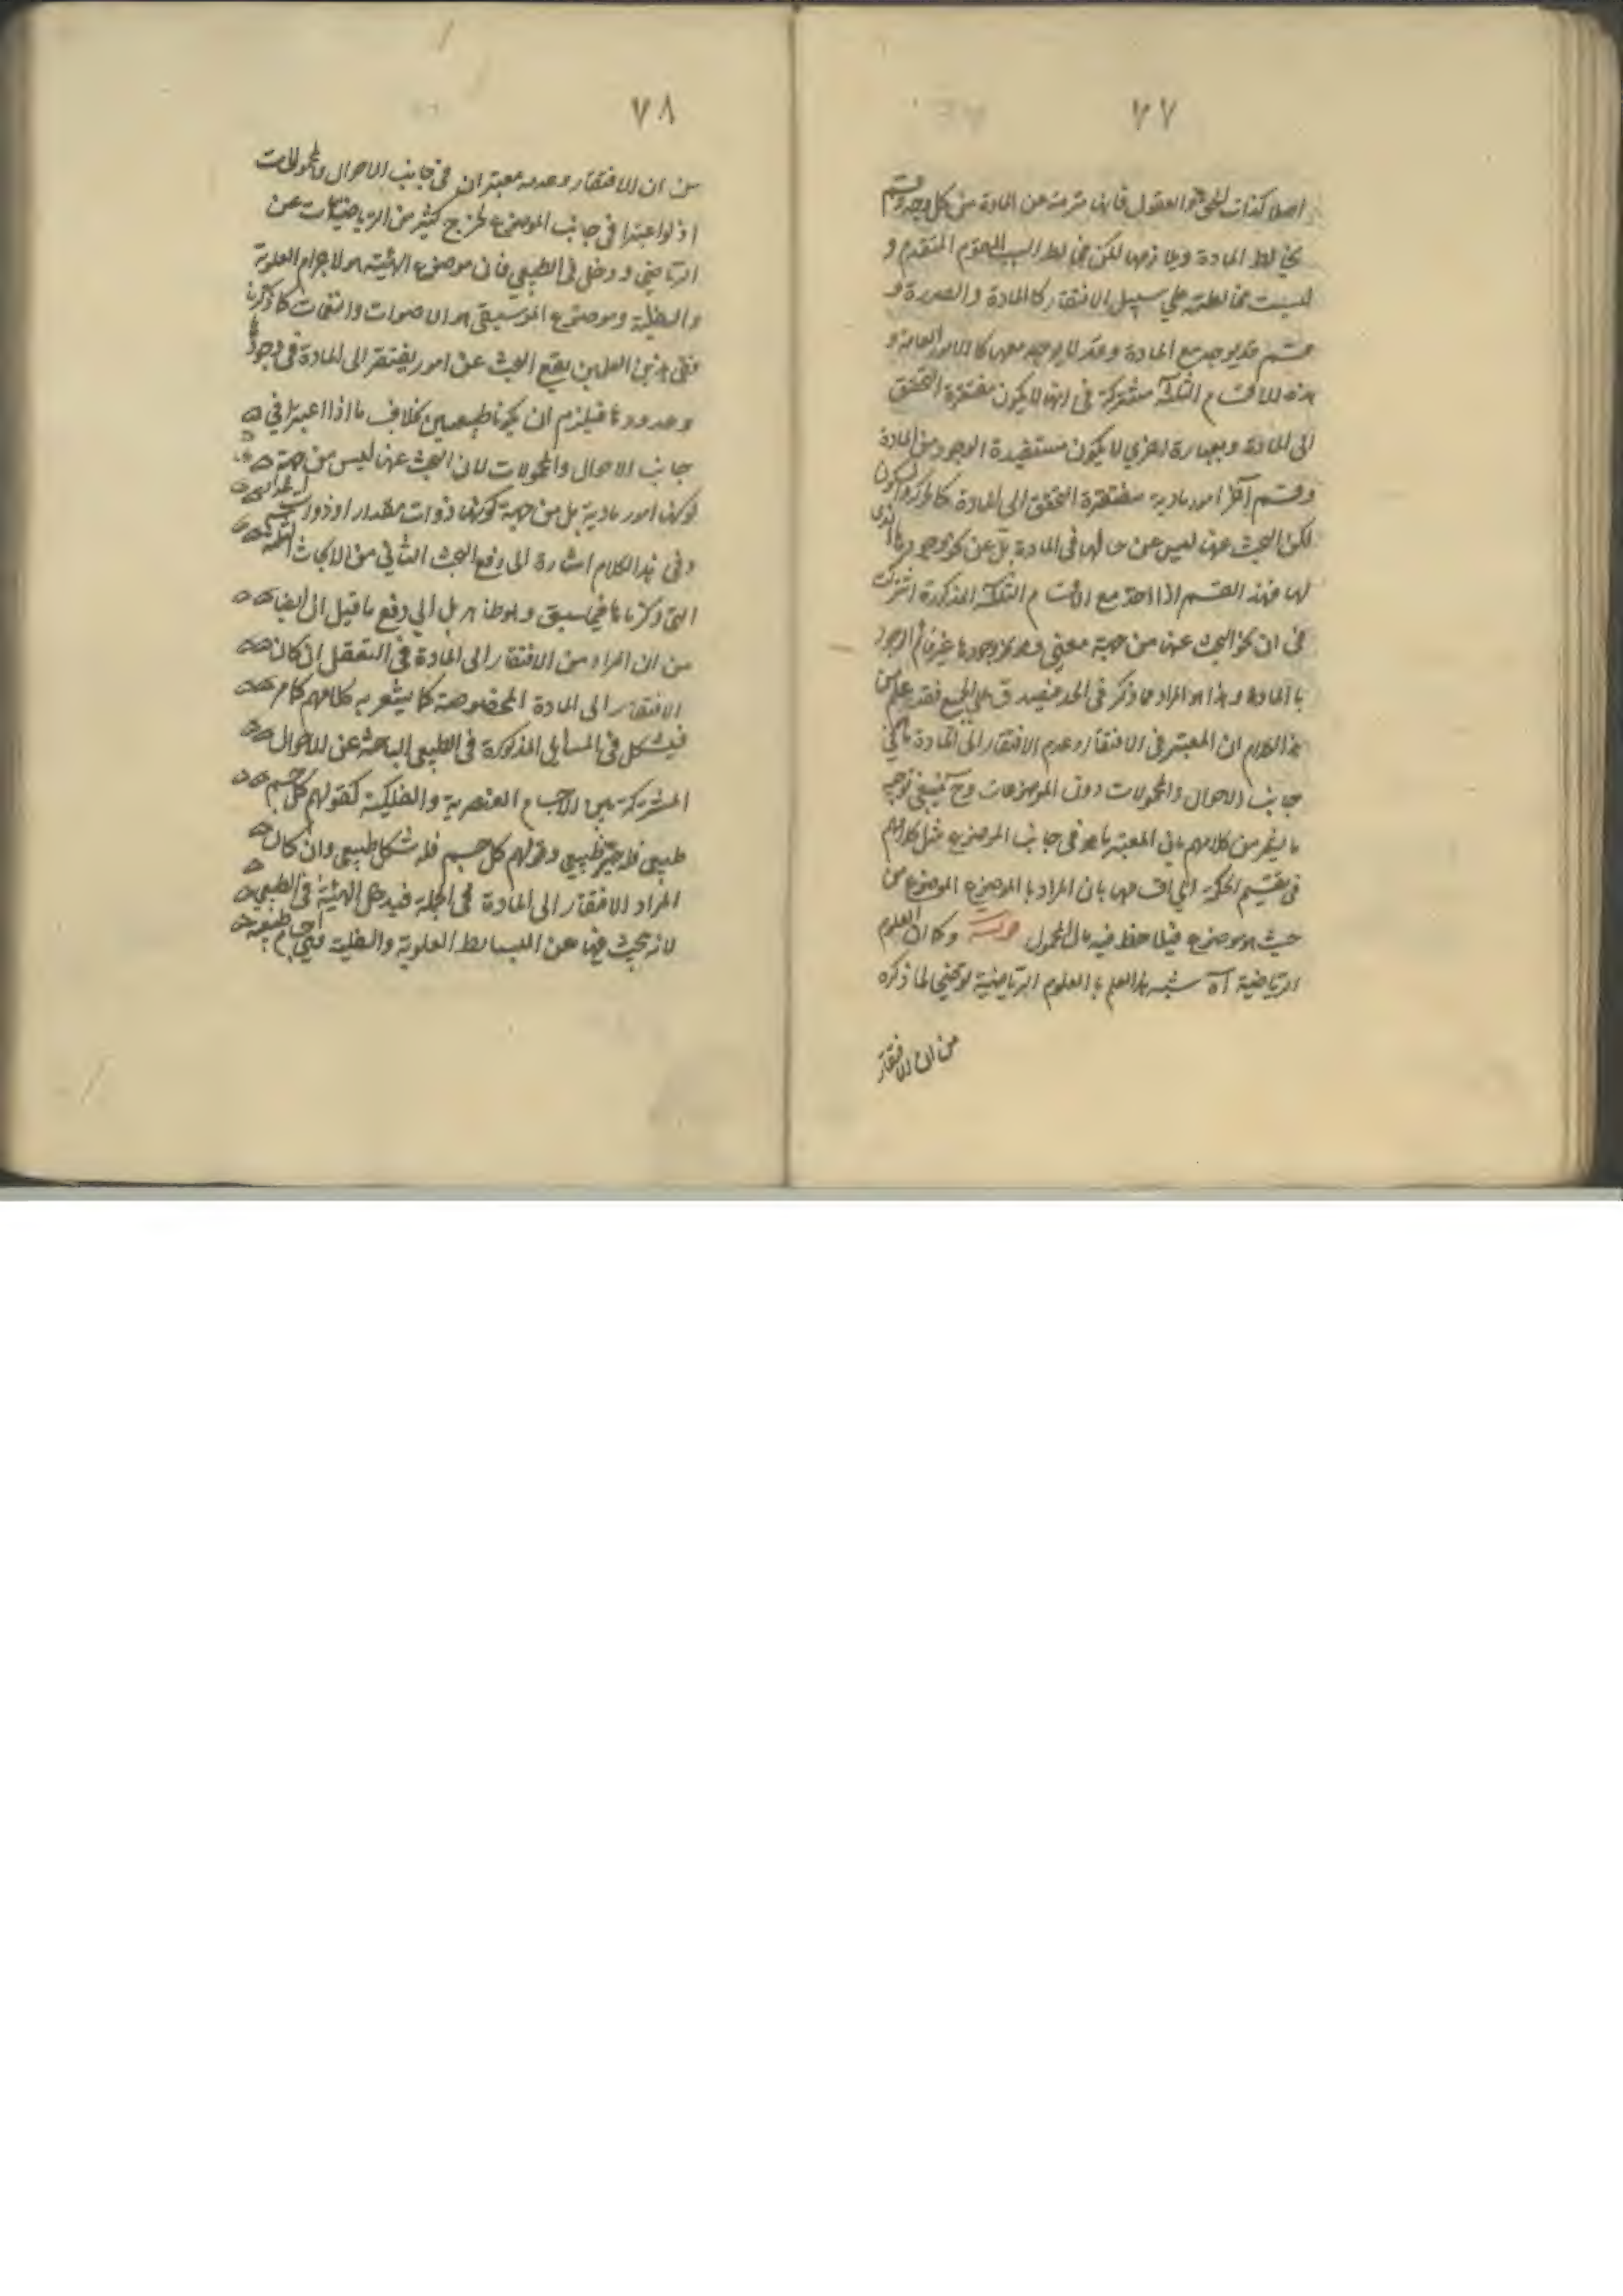 ٧٧
اصلا كذات الحق والعقول فانها مبرئة عن المادة من كل وجه وقسم
يخالط المادة ويقارنها لكن مخالطة السبب المقوم المتقدم و
ليست مخالطته على سبيل الافتقار كالمادة والصورة و
قسم قد يوجد مع المادة وقد لا يوجد معها كالامور العامة و
هذه الاقسام الثلثة مشتركة فى انها لا يكون مفتقرة التحقق
الى المادة وبعبارة اخرى لا يكون مستفيدة الوجود من المادة
وقسم آخر امور مادية مفتقرة التحقق الى المادة كالحركة والسكون
لكن البحث عنها ليس عن حالها فى المادة بل عن نحو وجودها الذى
لها فهذا القسم اذا اخذ مع الاقسام الثلثة المذكورة اشتركت
فى ان نحو البحث عنها من جهة معنى وهو نحو وجودها غير قائم الوجود
بالمادة وهذا هو المراد مما ذكر فى الحد فيصدق على الجميع فقد علم من
هذا الكلام ان المعتبر فى الافتقار وعدم الافتقار الى المادة ما فى
جانب الاحوال والمحمولات دون الموضوعات وح ينبغى توجيه
ما يشعر من كلامهم بان المعتبر ما هو فى جانب الموضوع مثل كلامهم
فى تقسيم الحكمة الى اقسامها بان المراد بالموضوع الموضوع من
حيث هو موضوع فيلاحظ فيه حال المحمول قوله وكما ان العلوم
الرياضية آه شبه هذا العلم بالعلوم الرياضية توضيحا لما ذكره
من ان الافتقار
٧٨
من ان الافتقار وعدمه معتبران فى جانب الاحوال والمحمولات
اذ لو اعتبرا فى جانب الموضوع لخرج كثير من الرياضيات عن
الرياضى ودخل فى الطبيعى فان موضوع الهيئة هو الاجرام العلوية
والسفلية وموضوع الموسيقى هو الاصوات والنغمات كما ذكرنا
ففى هذين العلمين يقع البحث عن امور يفتقر الى المادة فى وجودها
وحدودها فيلزم ان يكونا طبيعيين بخلاف ما اذا اعتبرا فى
جانب الاحوال والمحمولات لان البحث عنها ليس من جهة
كونها امور مادية بل من جهة كونها ذوات مقدار او ذوات
وفى هذا الكلام اشارة الى دفع البحث الثانى من الابحاث الثلثة
التى ذكرناها فيما سبق وهو ظاهر بل الى دفع ما قيل ان ايضا
من ان المراد من الافتقار الى المادة فى التعقل ان كان
الافتقار الى المادة المخصوصة كما يشعر به كلامهم كما مر
فيشكل فى المسايل المذكورة فى الطبيعى الباحثة عن الاحوال
المشتركة بين الاجسام العنصرية والفلكية كقولهم كل جسم
طبيعى فله حيز طبيعى وقولهم كل جسم فله شكل طبيعى وان كان
المراد الافتقار الى المادة فى الجملة فيدخل الهيئة فى الطبيعى
لانه يبحث فيها عن البسايط العلوية والسفلية وهى اجسام طبيعية